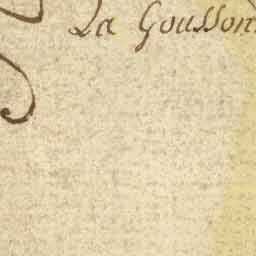 La Gousson